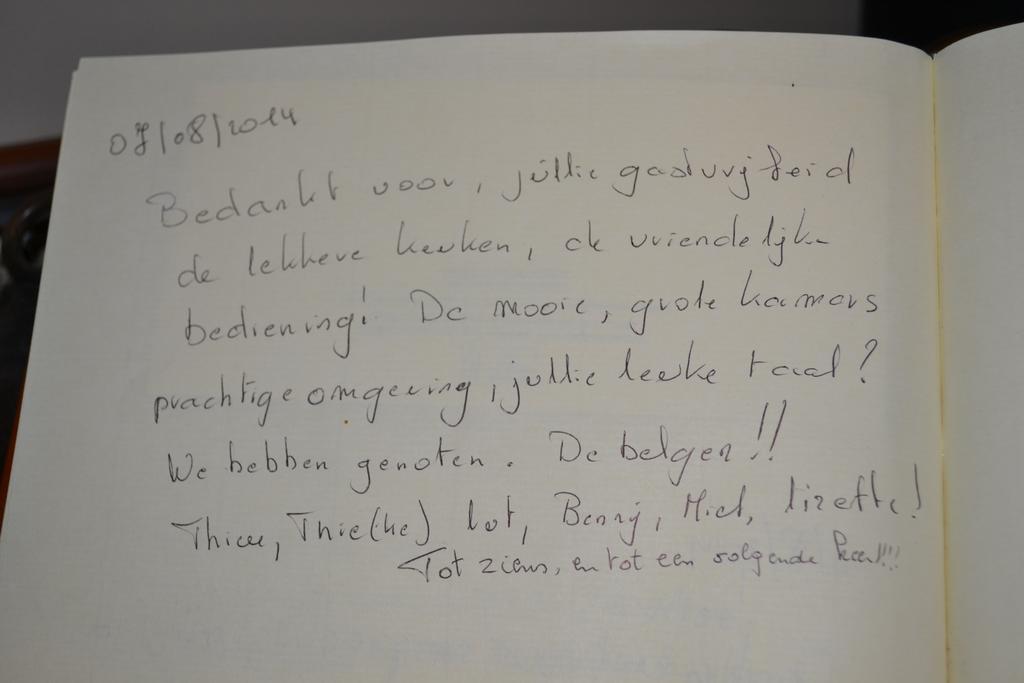 07/08/2014
Bedankt voor, jullie gastvrijheid
de lekkere keuken, de vriendelijke
bediening! De mooie, grote kamers
prachtige omgeving, jullie leuke taal?
We hebben genoten. De belgen!!
Thie(ke) Lot, Benny, Miet, lizette!
Tot ziens, en tot een volgende keer!!!